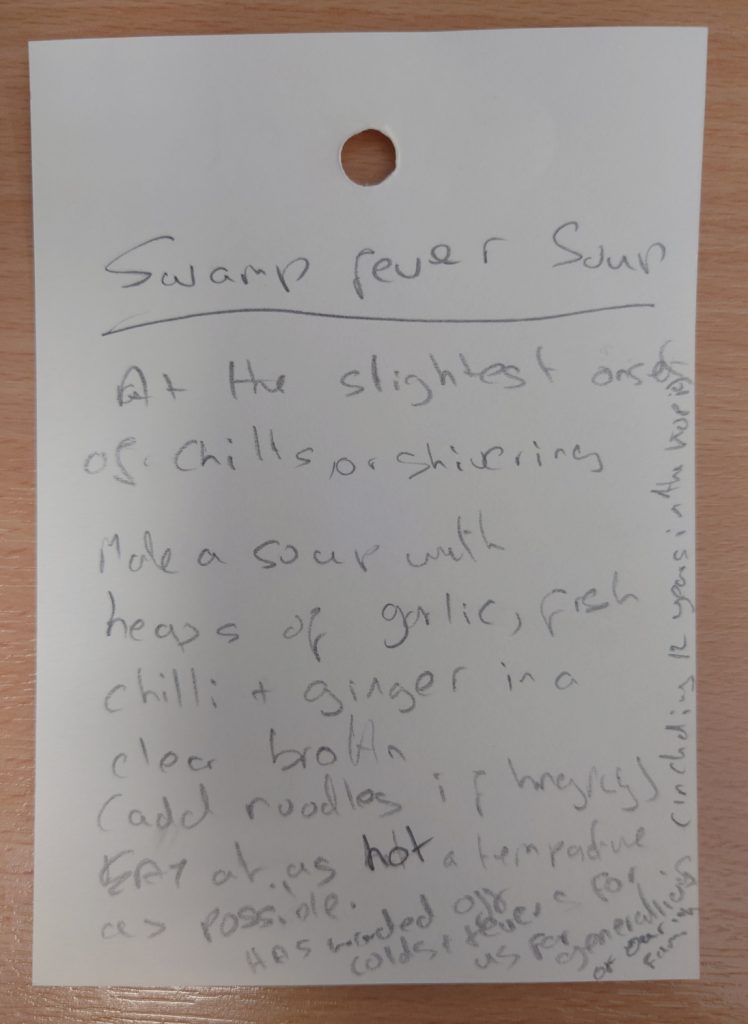 Swamp fever Soup
At the slightest onset
of chills, or shivering
Make a soup with
heaps of garlic, fish
chilli + ginger in a
clear broth
(add noodles if hungry)
EAT at as hot a temperature
as possible.
HAS warded off
colds + fevers for
us for generations
of our
family
(including 12 years in the tropics)